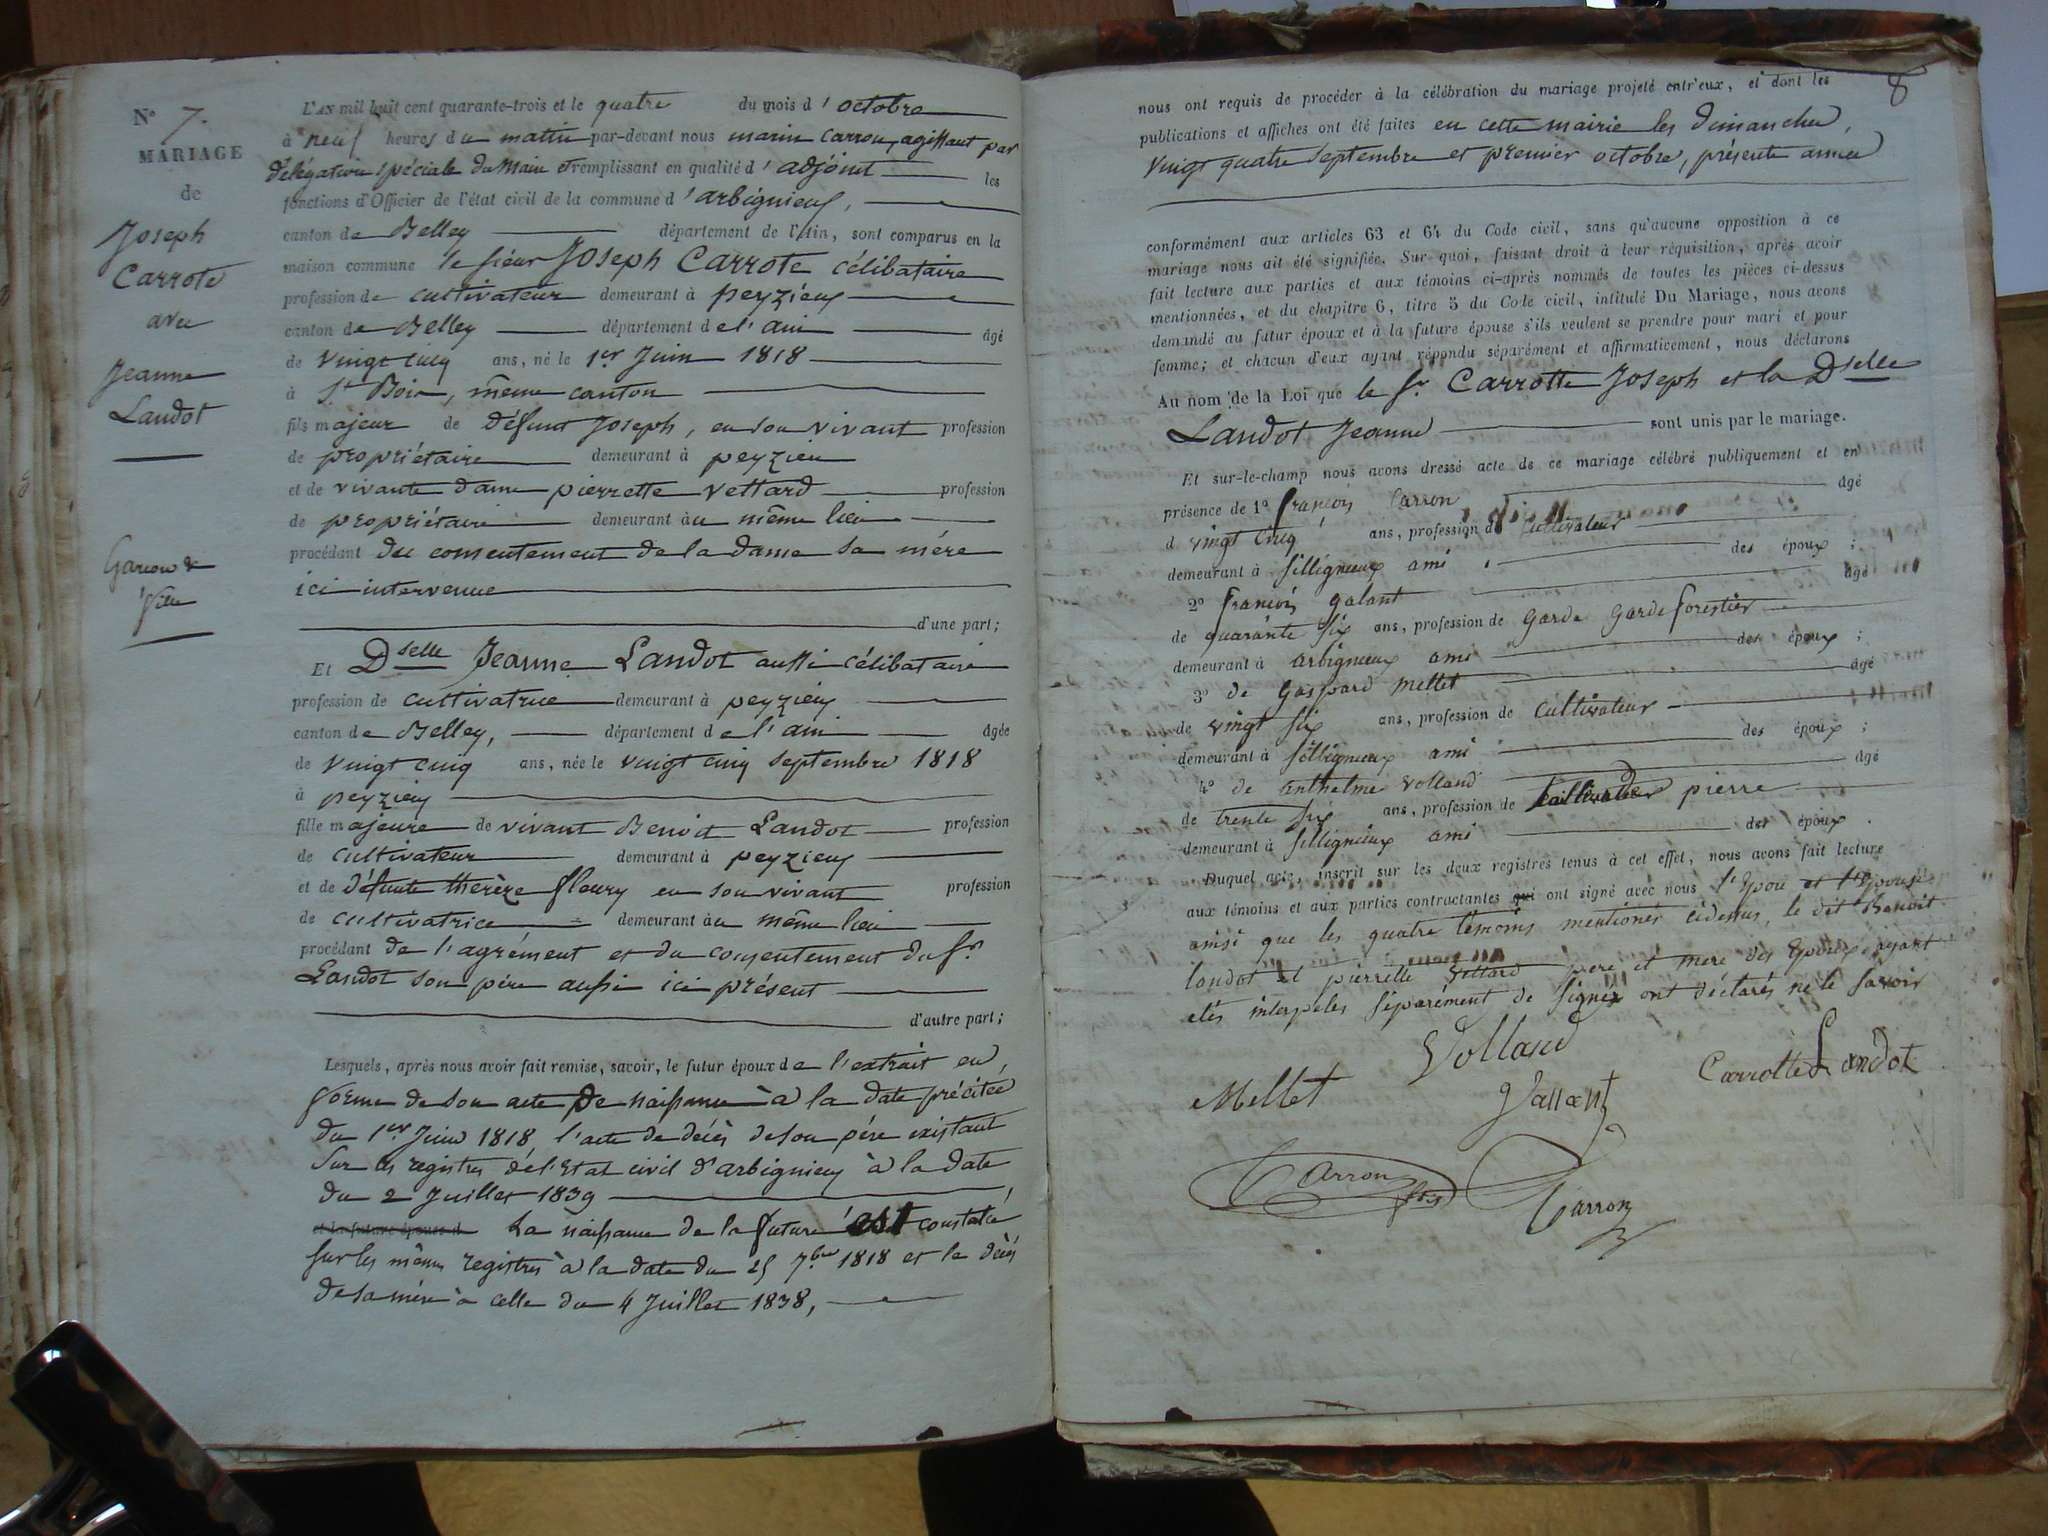 N° 7.
MARIAGE
de
Joseph
Carrote
avec
Jeanne
Landot
Garcon &
fille
L'AN mil huit cent quarante-trois et le quatre du mois d'octobre
à neuf heures du matin par-devant nous marin Carron, agissant par
délégation spéciale du Maire et remplissant en qualité d'adjoint les
fonctions d'Officier de l'état civil de la commune d'arbignieux,
canton de Belley département de l'Ain, sont comparus en la
maison commune le sieur Joseph Carrote célibataire
profession de cultivateur demeurant à peyzieu
canton de Belley département de l'ain âgé
de vingt cinq ans, né le 1er Juin 1818
à St Bois, même canton
fils majeur de défunt Joseph, en son vivant profession
de propriétaire demeurant à peyzieu
et de vivante dame pierrette vettard profession
de propriétaire demeurant au même lieu
procédant du consentement de la dame sa mére
ici intervenue
d'une part;
Et Dselle Jeanne Landot aussi célibataire
profession de cultivatrice demeurant à peyzieu
canton de Belley, département de l'ain âgée
de vingt cinq ans, née le vingt cinq septembre 1818
à peyzieu
fille majeure de vivant Benoit Landot profession
de cultivateur demeurant à peyzieu
et de défunte therèze fleury en son vivant profession
de cultivatrice demeurant au même lieu
procédant de l'agrément et du consentement du Sr
Landot son pére aussi ici présent
d'autre part;
Lesquels, après nous avoir fait remise, savoir, le futur époux de l'extrait en
forme de son acte de naissance à la date précitée
du 1er Juin 1818, l'acte de décès de son pére existant
sur les registres de l'Etat civil d'arbignieu à la date
du 2 Juillet 1839
et la future épouse d La naissance de la future est constatée
sur les mêmes registres à la date du 25 7bre 1818 et le décès
de sa mère à celle du 4 Juillet 1838,
8
nous ont requis de procéder à la célébration du mariage projeté entr'eux, et dont les
publications et affiches ont été faites en cette mairie les dimanches,
vingt quatre septembre et premier octobre, présente année
conformément aux articles 63 et 64 du Code civil, sans qu'aucune opposition à ce
mariage nous ait été signifiée. Sur quoi, faisant droit à leur réquisition, après avoir
fait lecture aux parties et aux témoins ci-après nommés de toutes les pièces ci-dessus
mentionnées, et du chapitre 6, titre 5 du Code civil, intitulé Du Mariage, nous avons
demandé au futur époux et à la future épouse s'ils veulent se prendre pour mari et pour
femme; et chacun d'eux ayant répondu séparément et affirmativement, nous déclarons
Au nom de la Loi que le Sr Carrotte Joseph et la Dselle
Landot Jeanne sont unis par le mariage.
Et sur-le-champ nous avons dressé acte de ce mariage célébré publiquement et en
présence de 1° françois Carron âgé
d vingt cinq ans, profession d cultivateur
demeurant à sillignieux ami des époux;
2° françois galant âgé
de quarante six ans, profession de Garde Garde forestier
demeurant à arbignieux ami des époux;
3° de Gaspard mellet âgé
de vingt six ans, profession de cultivateur
demeurant à sillignieux ami des époux;
4° de anthelme volland âgé
de trente six ans, profession de pierre
demeurant à sillignieux ami des époux.
Duquel acte, inscrit sur les deux registres tenus à cet effet, nous avons fait lecture
aux témoins et aux parties contractantes qui ont signé avec nous l'époux et l'épouse
ainsi que les quatre témoins mentionés cidessus, le dit Benoit
landot et pierrette vettard pere et mere des époux, ayant
etés interpelés séparément de signer ont déclarés ne le savoir
Volland
Carrotte Landot
Mellet
Carron
Carron